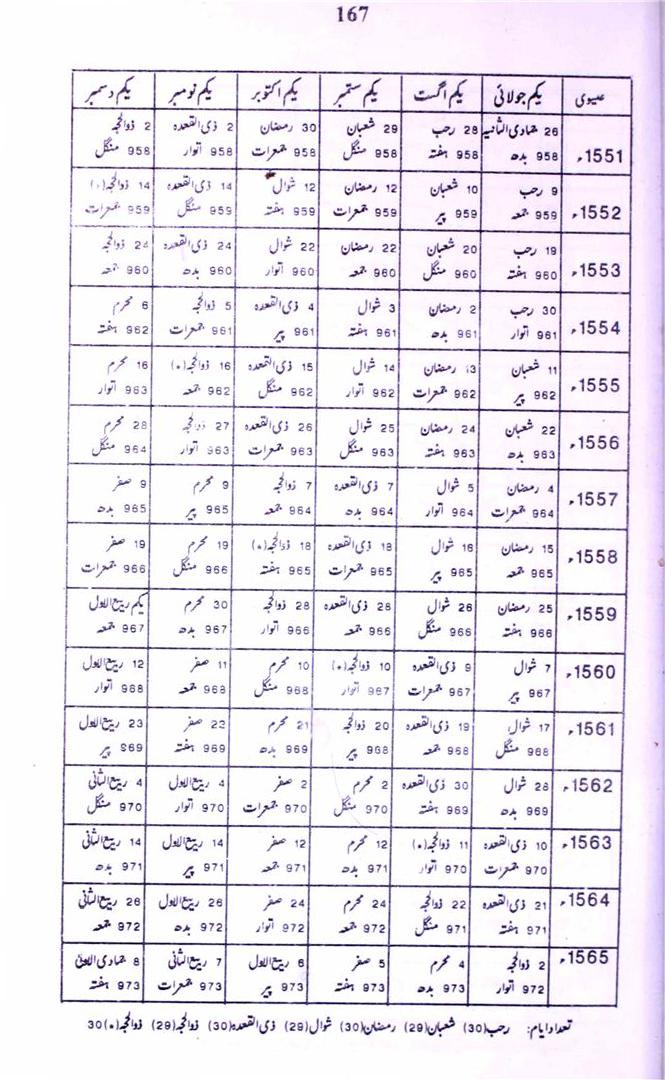 167
عیسوی یکم جولائی یکم اگست یکم ستمبر یکم اکتوبر یکم نومبر یکم دسمبر
1551ء 26 جمادی الثانیہ 28 رجب 29 شعبان 30 رمضان 2 ذی القعدہ 2 ذوالحجہ
958 بدھ 958 ہفتہ 958 منگل 958 جمعرات 958 اتوار 958 منگل
1552ء 9 رجب 10 شعبان 12 رمضان 12 شوال 14 ذی القعدہ 14 ذوالحجہ(٭)
959 جمعہ 959 پیر 959 جمعرات 959 ہفتہ 959 منگل 959 جمعرات
1553ء 19 رجب 20 شعبان 22 رمضان 22 شوال 24 ذی القعدہ 24 ذوالحجہ
960 ہفتہ 960 منگل 960 جمعہ 960 اتوار 960 بدھ 960 جمعہ
1554ء 30 رجب 2 رمضان 3 شوال 4 ذی القعدہ 5 ذوالحجہ 6 محرم
961 اتوار 961 بدھ 961 ہفتہ 961 پیر 961 جمعرات 962 ہفتہ
1555ء 11 شعبان 13 رمضان 14 شوال 15 ذی القعدہ 16 ذوالحجہ(٭) 16 محرم
962 پیر 962 جمعرات 962 اتوار 962 منگل 962 جمعہ 963 اتوار
1556ء 22 شعبان 24 رمضان 25 شوال 26 ذی القعدہ 27 ذوالحجہ 28 محرم
963 بدھ 963 ہفتہ 963 منگل 963 جمعرات 963 اتوار 964 منگل
1557ء 4 رمضان 5 شوال 7 ذی القعدہ 7 ذوالحجہ 9 محرم 9 صفر
964 جمعرات 964 اتوار 964 بدھ 964 جمعہ 965 پیر 965 بدھ
1558ء 15 رمضان 16 شوال 18 ذی القعدہ 18 ذوالحجہ(٭) 19 محرم 19 صفر
965 جمعہ 965 پیر 965 جمعرات 965 ہفتہ 966 منگل 966 جمعرات
1559ء 25 رمضان 26 شوال 28 ذی القعدہ 28 ذوالحجہ 30 محرم یکم ربیع الاول
966 ہفتہ 966 منگل 966 جمعہ 966 اتوار 967 بدھ 967 جمعہ
1560ء 7 شوال 9 ذی القعدہ 10 ذوالحجہ(٭) 10 محرم 11 صفر 12 ربیع الاول
967 پیر 967 جمعرات 967 اتوار 968 منگل 968 جمعہ 968 اتوار
1561ء 17 شوال 19 ذی القعدہ 20 ذوالحجہ 21 محرم 23 صفر 23 ربیع الاول
968 منگل 968 جمعہ 968 پیر 969 بدھ 969 ہفتہ 969 پیر
1562ء 28 شوال 30 ذی القعدہ 2 محرم 2 صفر 4 ربیع الاول 4 ربیع الثانی
969 بدھ 969 ہفتہ 970 منگل 970 جمعرات 970 اتوار 970 منگل
1563ء 10 ذی القعدہ 11 ذوالحجہ(٭) 12 محرم 12 صفر 14 ربیع الاول 14 ربیع الثانی
970 جمعرات 970 اتوار 971 بدھ 971 جمعہ 971 پیر 971 بدھ
1564ء 21 ذی القعدہ 22 ذوالحجہ 24 محرم 24 صفر 26 ربیع الاول 26 ربیع الثانی
971 ہفتہ 971 منگل 972 جمعہ 972 اتوار 972 بدھ 972 جمعہ
1565ء 2 ذوالحجہ 4 محرم 5 صفر 6 ربیع الاول 7 ربیع الثانی 8 جمادی الاولیٰ
972 اتوار 973 بدھ 973 ہفتہ 973 پیر 973 جمعرات 973 ہفتہ
تعداد ایام: رجب(30) شعبان(29) رمضان(30) شوال(29) ذی القعدہ(30) ذوالحجہ(29) ذوالحجہ(٭)30